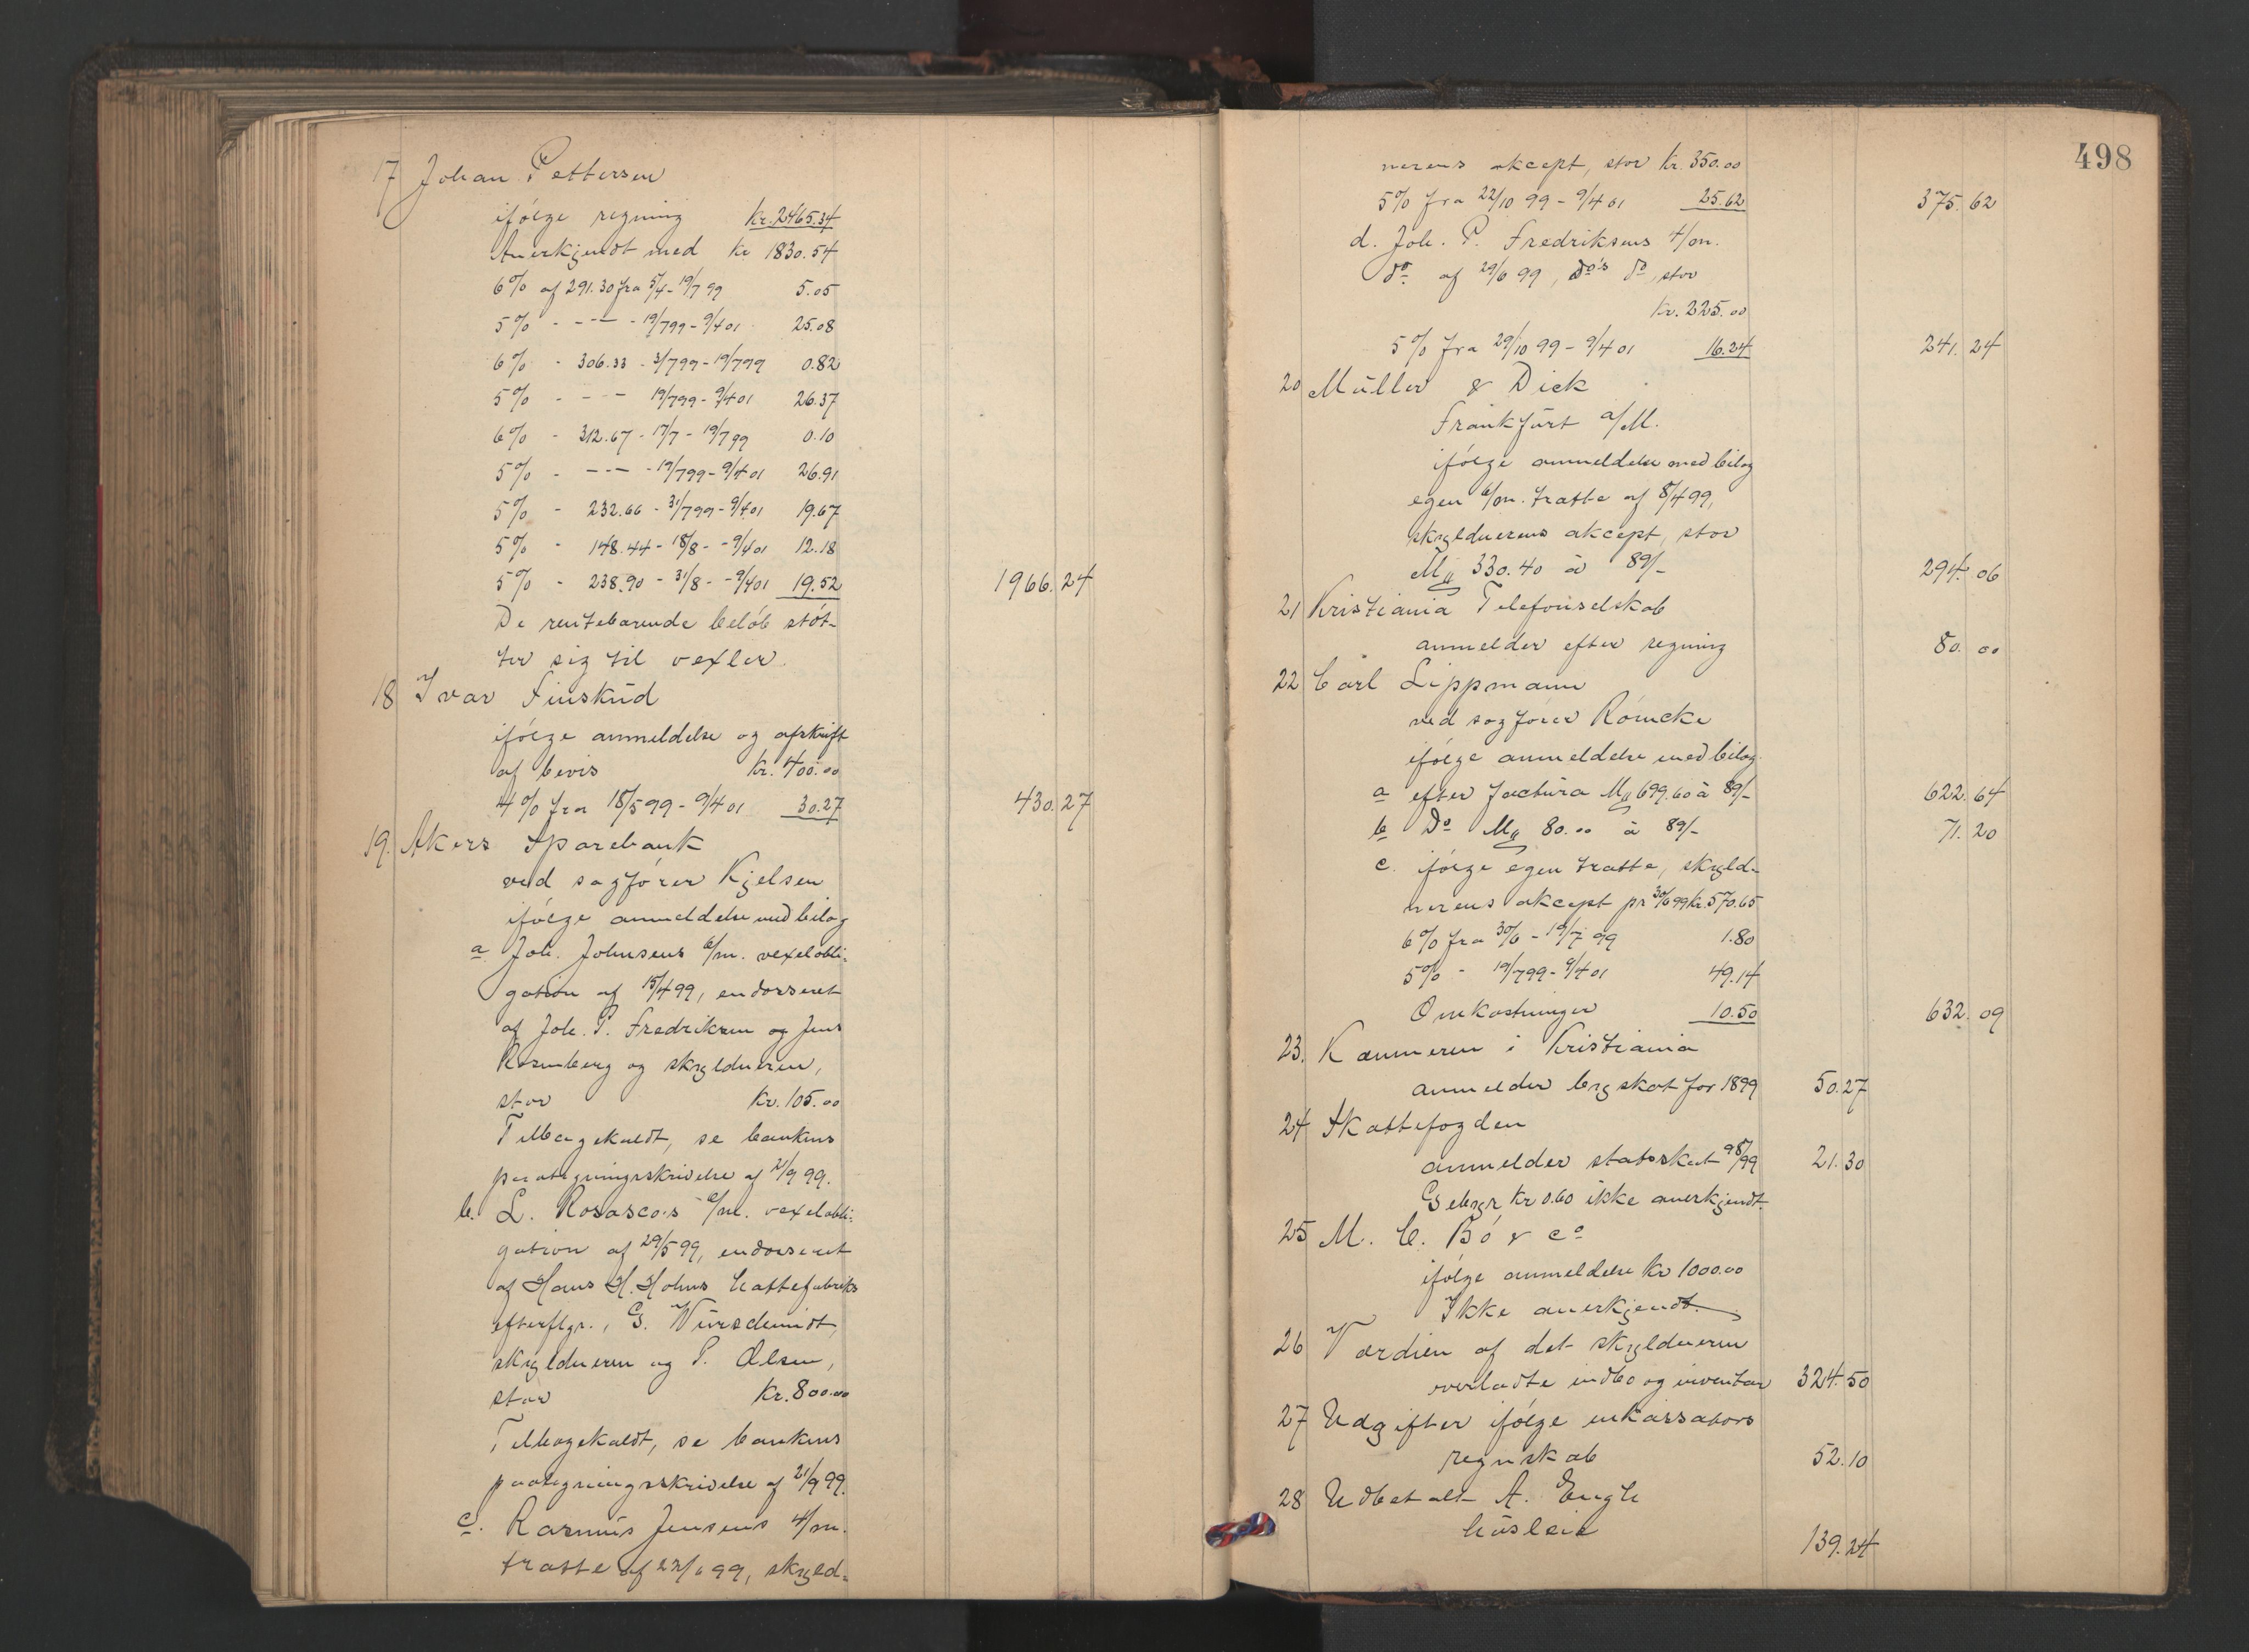 17 Johan Pettersen
ifølge regning Kr. 2465.34
Anerkjendt med Kr 1830.54
6% af 291.30 fra 5/4 - 19/7 99 5.05
5% - - - - 19/7 99 - 9/4 01 25.08
6% - 306.33 - 3/7 99 - 19/7 99 0.82
5% - - - 19/7 99 - 9/4 01 26.37
6% - 312.67 - 17/7 - 19/7 99 0.10
5% - - - - 19/7 99 - 9/4 01 26.91
5% - 232.66 - 31/7 99 - 9/4 01 19.67
5% - 148.44 - 18/8 - - 9/4 01 12.18
5% - 238.90 - 31/8 - - 9/4 01 19.52 1966.24
De rentebærende beløb støt-
ter sig til vexler.
18 Ivar Finskud
ifølge anmeldelse og afskrift
af bevis Kr. 400.00
4% fra 18/5 99 - 9/4 01 30.27 430.27
19. Akers Sparebank
ved sagfører Kjelsen
ifølge anmeldelse med bilag
a Joh. Johnsens 6/m. vexelobli-
gation af 15/4 99, endosseret
af Joh. P. Fredriksen og Jens
Rosenberg og skyldneren,
stor Kr. 105.00
Tilbagekaldt, se bankens
paategningsskrivelse af 21/9 99.
b. L. Rosasco's 6/m. vexelobli-
gation af 29/5 99, endosseret
af Hans H. Holms Hattefabriks
efterflgr., G. Würschmidt,
skyldneren og P. Olsen,
stor Kr. 800.00
Tilbagekaldt, se bankens
paategningsskrivelse af 21/9 99.
c. Rasmus Jensens 4/m.
tratte af 22/6 99, skyld-
498
nerens akcept, stor Kr. 350.00
5% fra 22/10 99 - 9/4 01 25.62 375.62
d. Joh. P. Fredriksens 4/m.
do af 29/6 99, do's do, stor
Kr. 225.00
5% fra 29/10 99 - 9/4 01 16.24 241.24
20 Müller & Dick
Frankfurt a/M.
ifølge anmeldelse med bilag
egen 6/m. tratte af 8/4 99,
skyldnerens akcept, stor
M 330.40 à 89/- 294.06
21 Kristiania Telefonselskab
anmelder efter regning 80.00
22 Carl Lippmann
ved sagfører Römcke
ifølge anmeldelse med bilag
a efter factura M 699.60 à 89/- 622.64
b Do M 80.00 à 89/- 71.20
c. ifølge egen tratte, skyld-
nerens akcept pr 30/6 99 Kr. 570.65
6% fra 30/6 - 19/7 99 1.80
5% - 19/7 99 - 9/4 01 49.14
Omkostninger 10.50 632.09
23. Kæmneren i Kristiania
anmelder byskat for 1899 50.27
24 Skattefogden
anmelder statsskat 98/99 21.30
Gebyr Kr 0.60 ikke anerkjendt.
25 M. C. Bó & Co
ifølge anmeldelse Kr 1000.00
Ikke anerkjendt.
26 Værdien af det skyldneren
overladte indbo og inventar 324.50
27 Udgifter ifølge inkassators
regnskab 52.10
28 Udbetalt A. Engh
husleie 139.24